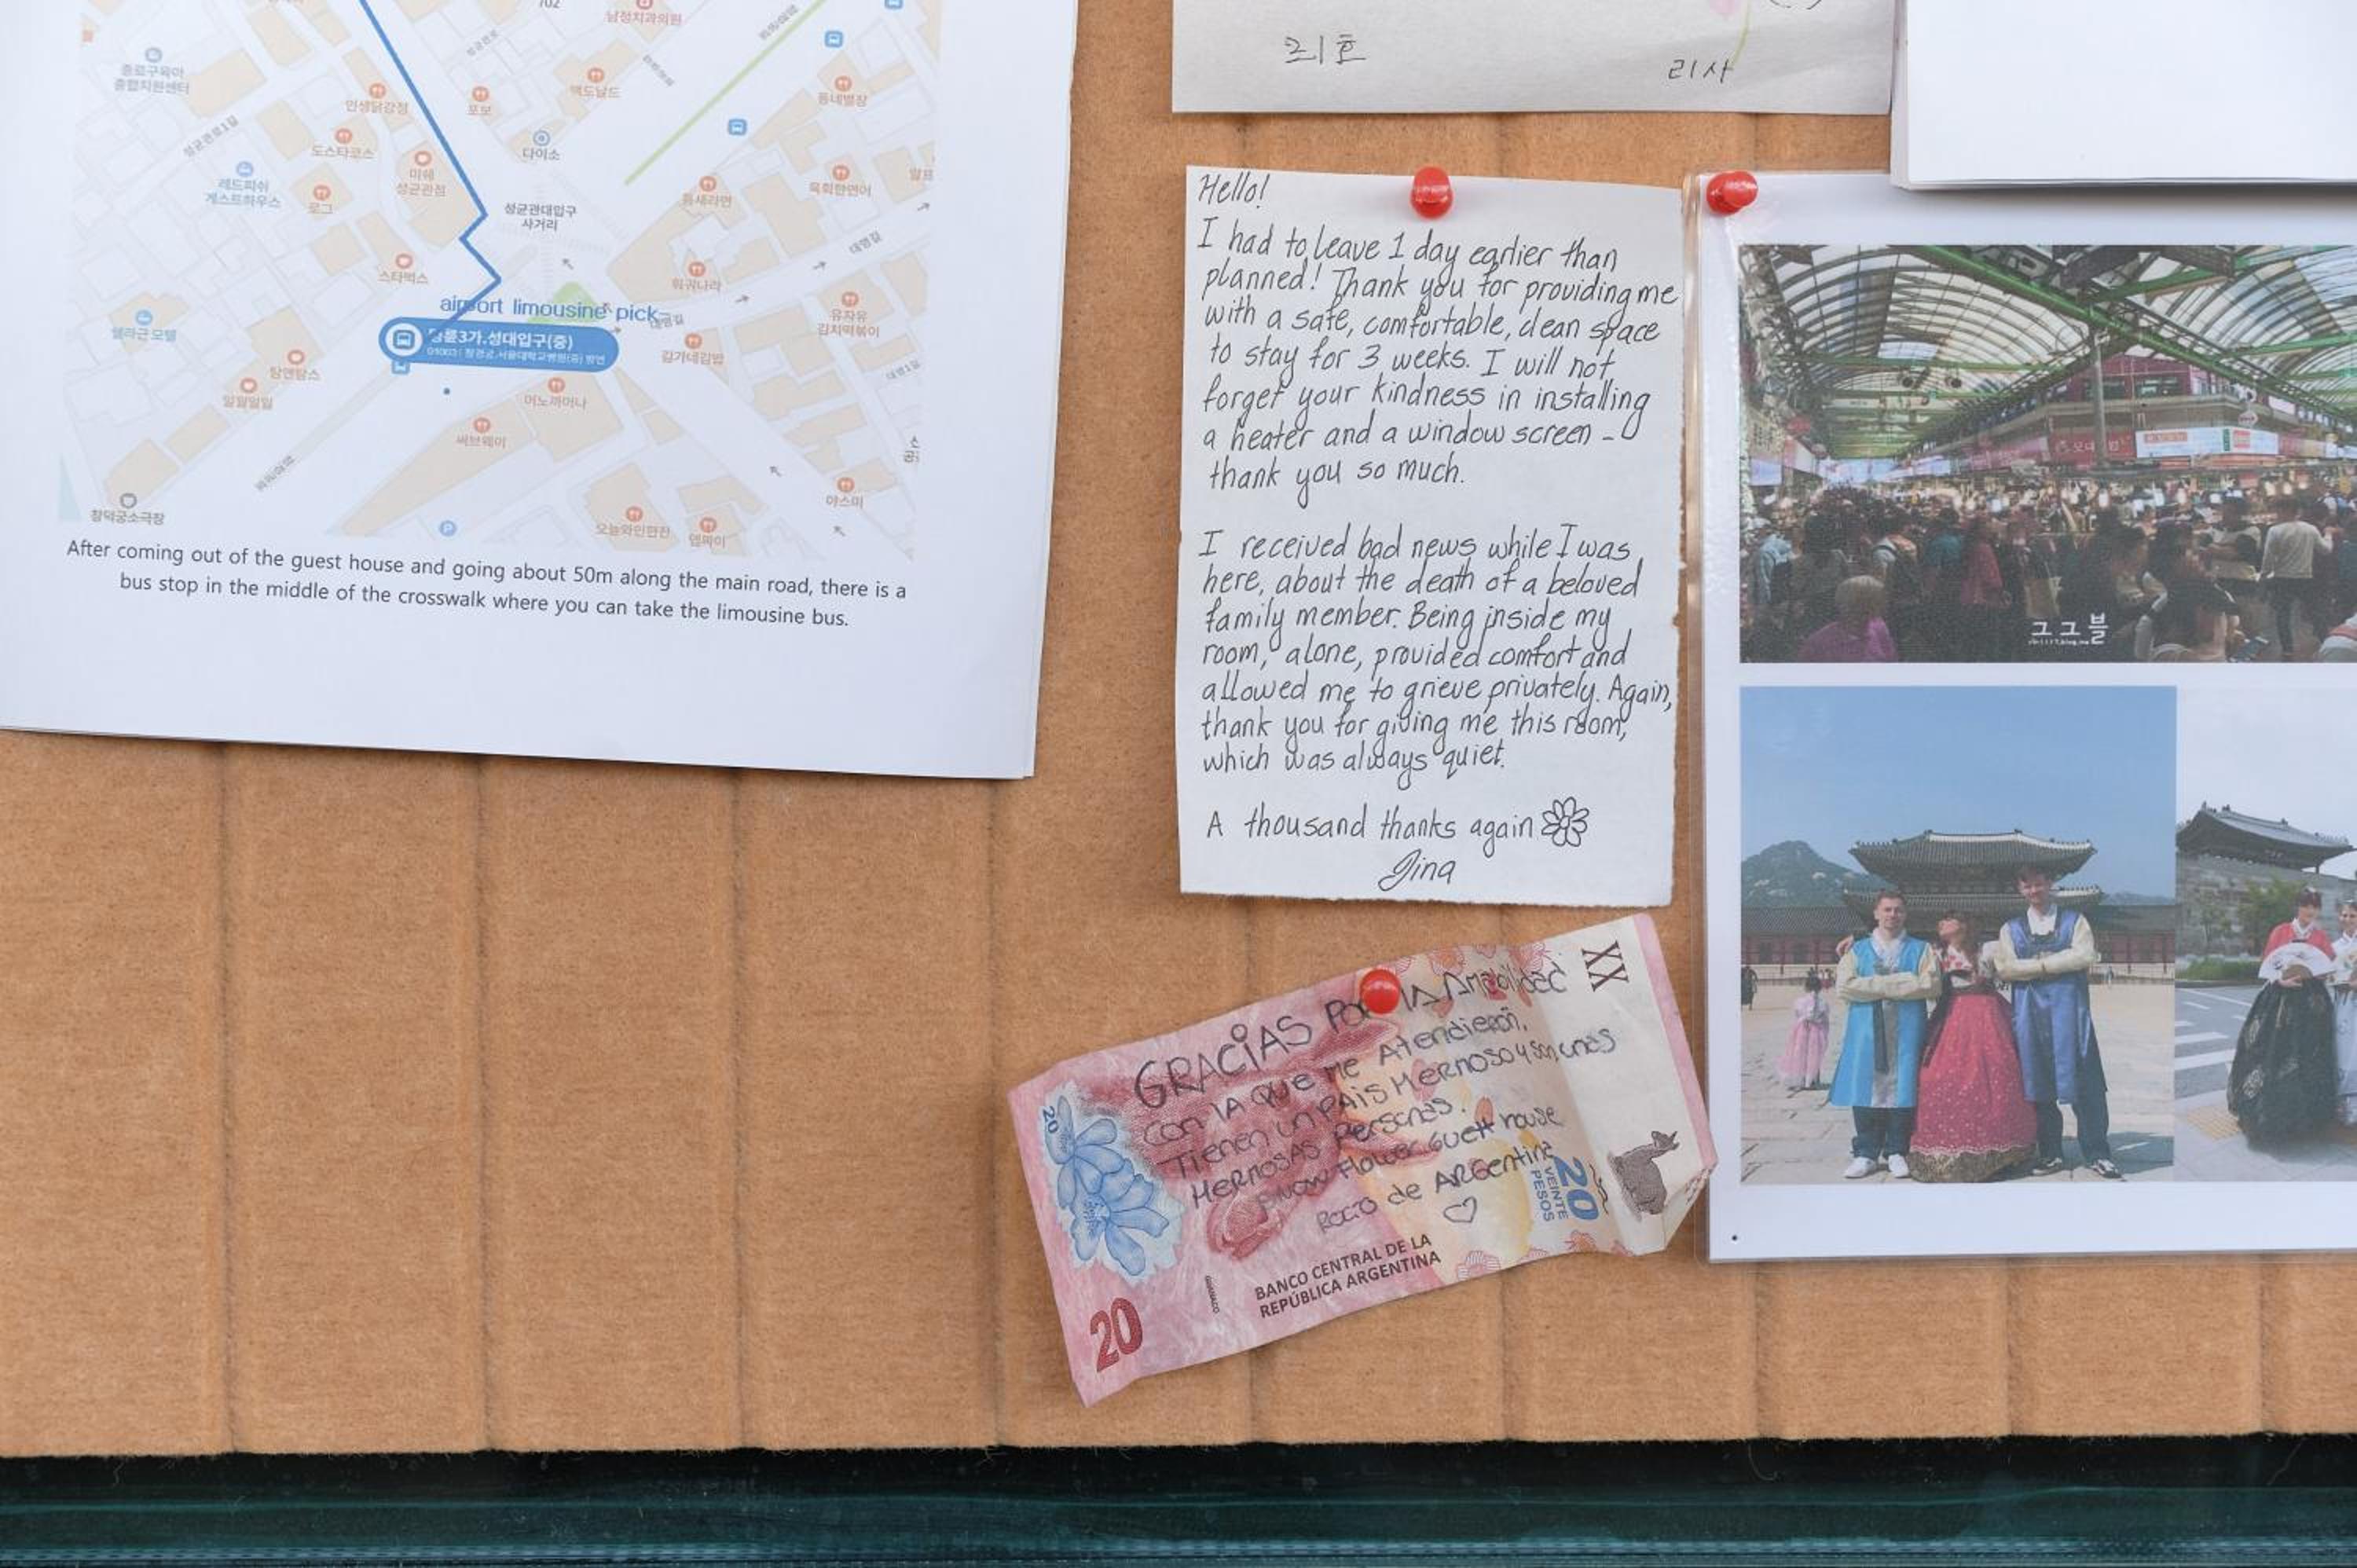 702
남정치과의원
종로구육아
종합지원센터
인생닭강정
포보
맥도날드
동네별장
성균관로1길
도스타코스
다이소
레드피쉬
게스트하우스
로그
미쉐
성균관점
틈새라면
육회란연어
성균관대입구
사거리
대명길
스타벅스
위귀나라
airport limousine pick-
대명길
명륜3가.성대입구(중)
유자유
김치떡볶이
엘라균모텔
김가네김밥
탐앤탐스
대명1길
일월일일
어노까미나
써브웨이
창덕궁소극장
야스미
오늘와인한잔
After coming out of the guest house and going about 50m along the main road, there is a
bus stop in the middle of the crosswalk where you can take the limousine bus.
리호
리사
Hello!
I had to leave 1 day earlier than
planned! Thank you for providing me
with a safe, comfortable, clean space
to stay for 3 weeks. I will not
forget your kindness in installing
a heater and a window screen -
thank you so much.
I received bad news while I was
here, about the death of a beloved
family member. Being inside my
room, alone, provided comfort and
allowed me to grieve privately. Again,
thank you for giving me this room,
which was always quiet.
A thousand thanks again
Gina
그그블
GRACiAS POR lA Amabilidad
con lA QUE me Atendieron.
Tienen un PAiS Hermoso y son unas
Hermosas Personas.
Snow Flower Guett house
Rocio de ARGentina
XX
20
20
VEINTE
PESOS
BANCO CENTRAL DE LA
REPÚBLICA ARGENTINA
20